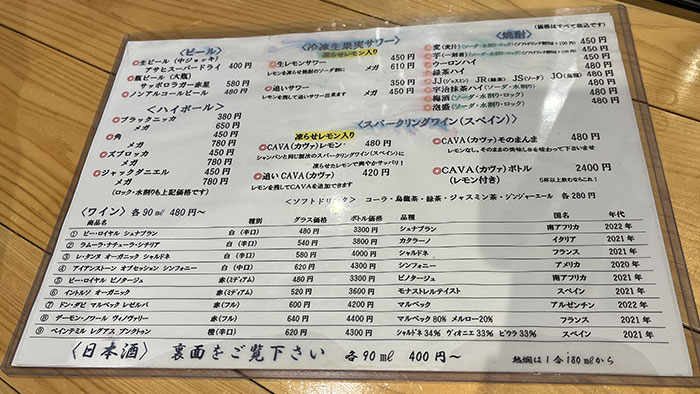 〈ビール〉
生ビール(中ジョッキ)
アサヒスーパードライ 400円
瓶ビール(大瓶)
サッポロラガー赤星 580円
ノンアルコールビール 480円
〈ハイボール〉
ブラックニッカ 380円
メガ 650円
角 450円
メガ 780円
ズブロッカ 450円
メガ 780円
ジャックダニエル 450円
メガ 780円
(ロック・水割りも上記価格です)
〈冷凍生果実サワー〉
凍らせレモン入り
生レモンサワー 450円
レモンを凍らせ焼酎のソーダ割に メガ 610円
追いサワー 350円
レモンを残してサワー出来ます メガ 450円
〈焼酎〉
(価格はすべて税込です)
麦(麦汁)(ソーダ・水割り・ロック) 450円
芋(一刻者)(ソーダ・水割り・ロック) 450円
ウーロンハイ 450円
緑茶ハイ 450円
JJ(ジャスミン) JR(緑茶) JS(ソーダ) JO(烏龍) 480円
宇治抹茶ハイ(ソーダ・水割り) 480円
梅酒(ソーダ・水割り・ロック) 480円
泡盛(ソーダ・水割り・ロック) 480円
〈スパークリングワイン(スペイン)〉
凍らせレモン入り
CAVA(カヴァ)レモン 480円
シャンパンと同じ製法のスパークリングワイン(スペイン)に
凍らせたレモンで爽やかサッパリ!
追いCAVA(カヴァ) 420円
レモンを残してCAVAを追加できます
CAVA(カヴァ)そのまんま 480円
レモンなし。そのままの美味しさを味わって下さいませ
CAVA(カヴァ)ボトル 2400円
(レモン付き) 5杯以上飲むならこれ!
〈ソフトドリンク〉 コーラ・烏龍茶・緑茶・ジャスミン茶・ジンジャーエール 各280円
〈ワイン〉各90㎖ 480円~
商品名 種別 グラス価格 ボトル価格 品種 国名 年代
① ビー・ロイヤル シュナブラン 白(辛口) 480円 3300円 シュナブラン 南アフリカ 2022年
② ラムーラ・ナチューラ・シチリア 白(辛口) 540円 3800円 カタラーノ イタリア 2021年
③ レ・タンヌ オーガニック シャルドネ 白(辛口) 580円 4000円 シャルドネ フランス 2021年
④ アイアンストーン オブセッション シンフォニー 白(中口) 620円 4300円 シンフォニー アメリカ 2020年
⑤ ビー・ロイヤル ピノタージュ 赤(ミディアム) 480円 3300円 ピノタージュ 南アフリカ 2021年
⑥ イントルソ オーガニック 赤(ミディアム) 520円 3600円 モナストレルテイスト スペイン 2021年
⑦ ドン・ダビ マルベック レセルバ 赤(フル) 600円 4200円 マルベック アルゼンチン 2022年
⑧ デーモン・ノワール ヴィノヴァリー 赤(フル) 640円 4400円 マルベック80% メルロー20% フランス 2021年
⑨ ベインテミル レグアス ブンクトゥン 橙(辛口) 620円 4300円 シャルドネ34% ヴィオニエ33% ビウラ33% スペイン 2021年
〈日本酒〉 裏面をご覧下さい 各90㎖ 400円~ 熱燗は1合180㎖から